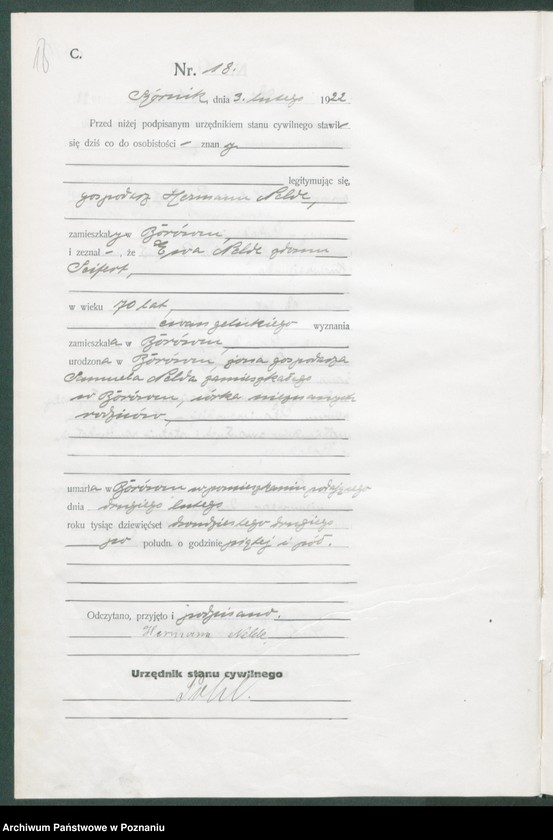 18
C.
Nr. 18.
Kórnik, dnia 3. lutego 1922
Przed niżej podpisanym urzędnikiem stanu cywilnego stawił
się dziś co do osobistości – znany
legitymując się,
gospodarz Hermann Nelde,
zamieszkały w Borówcu,
i zeznał –, że Ewa Nelde
Seifert,
w wieku 70 lat,
ewangelickiego wyznania
zamieszkała w Borówcu,
urodzona w Borówcu, żona gospodarza
Samuela Nelda zamieszkałego
w Borówcu, córka nieznanych
rodziców,
umarła w Borówcu w pomieszkaniu
dnia drugiego lutego
roku tysiąc dziewięćset dwudziestego drugiego
po połudn. o godzinie piątej i pół.
Odczytano, przyjęto i podpisano.
Hermann Nelde
Urzędnik stanu cywilnego
Archiwum Państwowe w Poznaniu